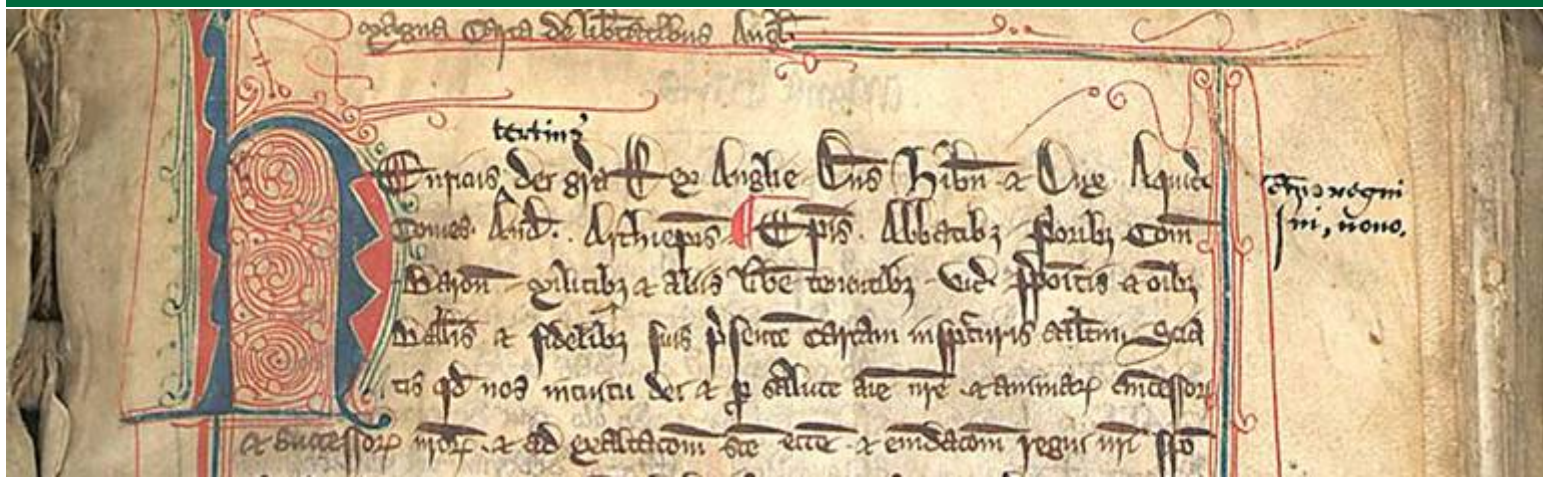 Magna Carta de lib̄tatibus Angl̄
tertius
Henricus dei gr̄a Rex Anglie Dn̄s Hib̄n ⁊ Dux Aquit̄
Comes And̄. Archiep̄is Ep̄is. Abbatibȝ p̄oribȝ Com̄
Baron̄ militibȝ ⁊ aliis lib̄e tenentibȝ vic̄ p̄positis ⁊ oībȝ
Ball̄is ⁊ fidelibȝ suis p̄sentē cartam inspc̄turis sal̄tm Scia
tis qd̄ nos intuitu dei ⁊ ꝑ salute aīe nr̄e ⁊ animaꝝ ancessoꝝ
⁊ successoꝝ nr̄oꝝ ⁊ ad exaltacōm sc̄e ecc̄e ⁊ emēdacōm regni nr̄i spō
regni
sui, nono.